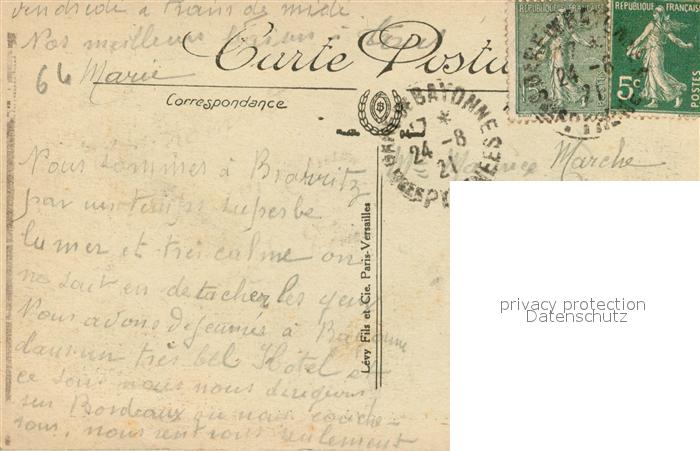 vendredi a train de midi
Nos meilleurs à tous
64 Marie
Carte Posta
Correspondance
RÉPUBLIQUE FRANÇAISE
15c
RÉPUBLIQUE FRANÇAISE
5c
POSTES
BAYONNE
17 *
24 -8
21
PYRENEES
Marche
Nous sommes à Biarritz
par un temps superbe
la mer et très calme on
ne sait en détacher les yeux
Nous avons dejeunés à Bayonne
dans un très bel Hotel et
ce soir nous nous dirigeons
sur Bordeaux ou nous couche-
rons, nous rentrons seulement
Lévy Fils et Cie. Paris-Versailles
privacy protection
Datenschutz